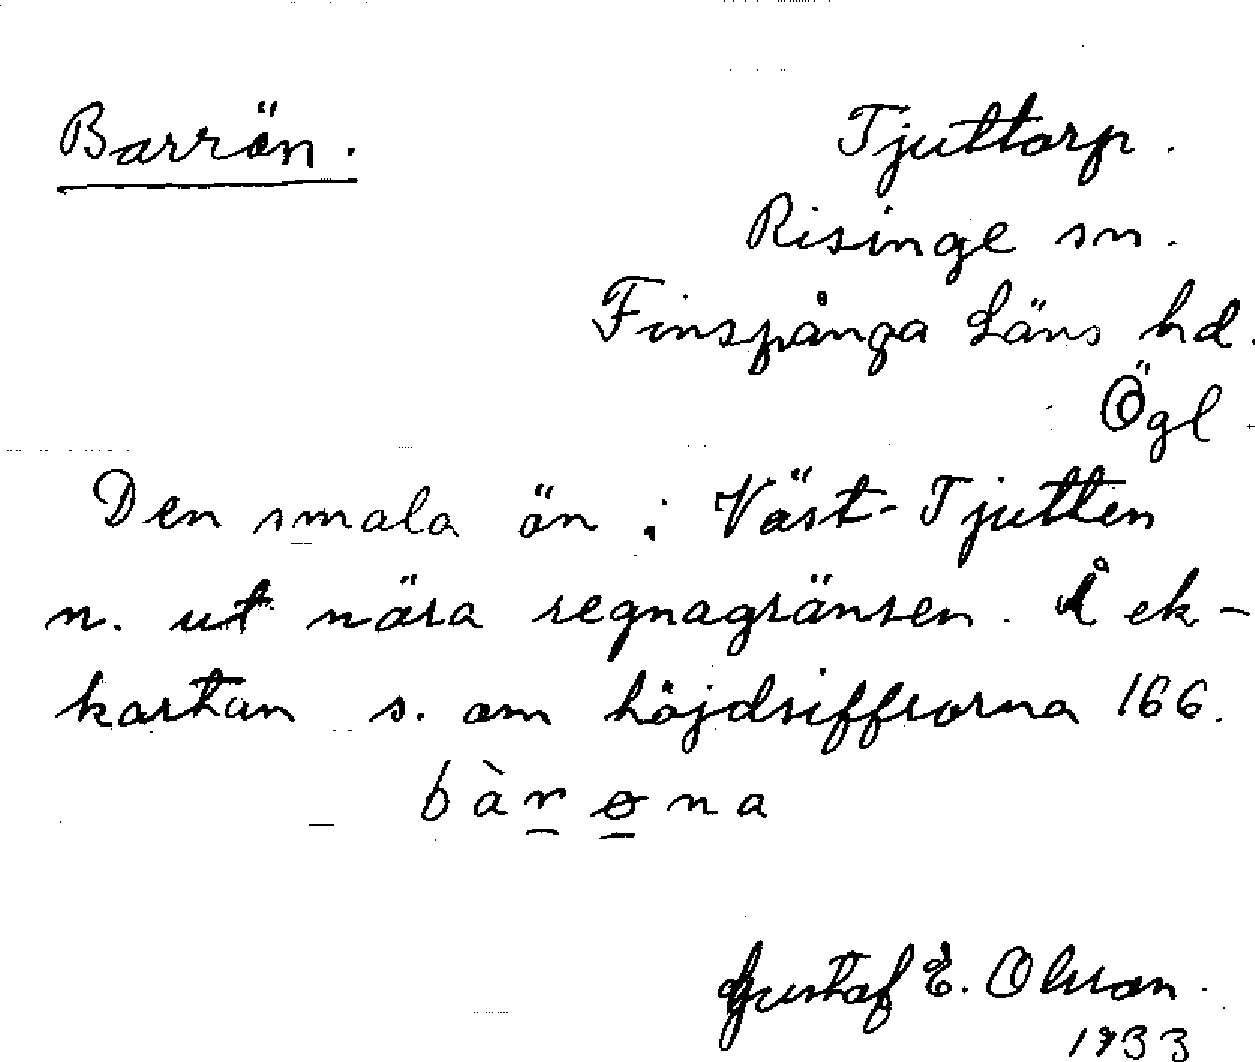 Barrön.
Tjuttorp.
Risinge sn.
Finspånga Läns hd.
Ögl.
Den smala ön i Väst-Tjutten
n. ut nära regnagränsen. Å ek-
kartan s. om höjdsiffrorna 166.
bàr̲ø̲na
Gustaf E. Olsson.
1933